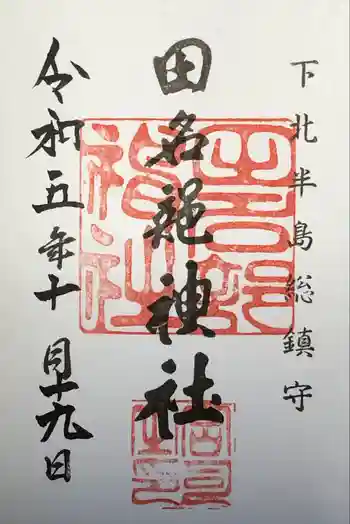 下北半島総鎮守
田名部神社
令和五年十月十九日